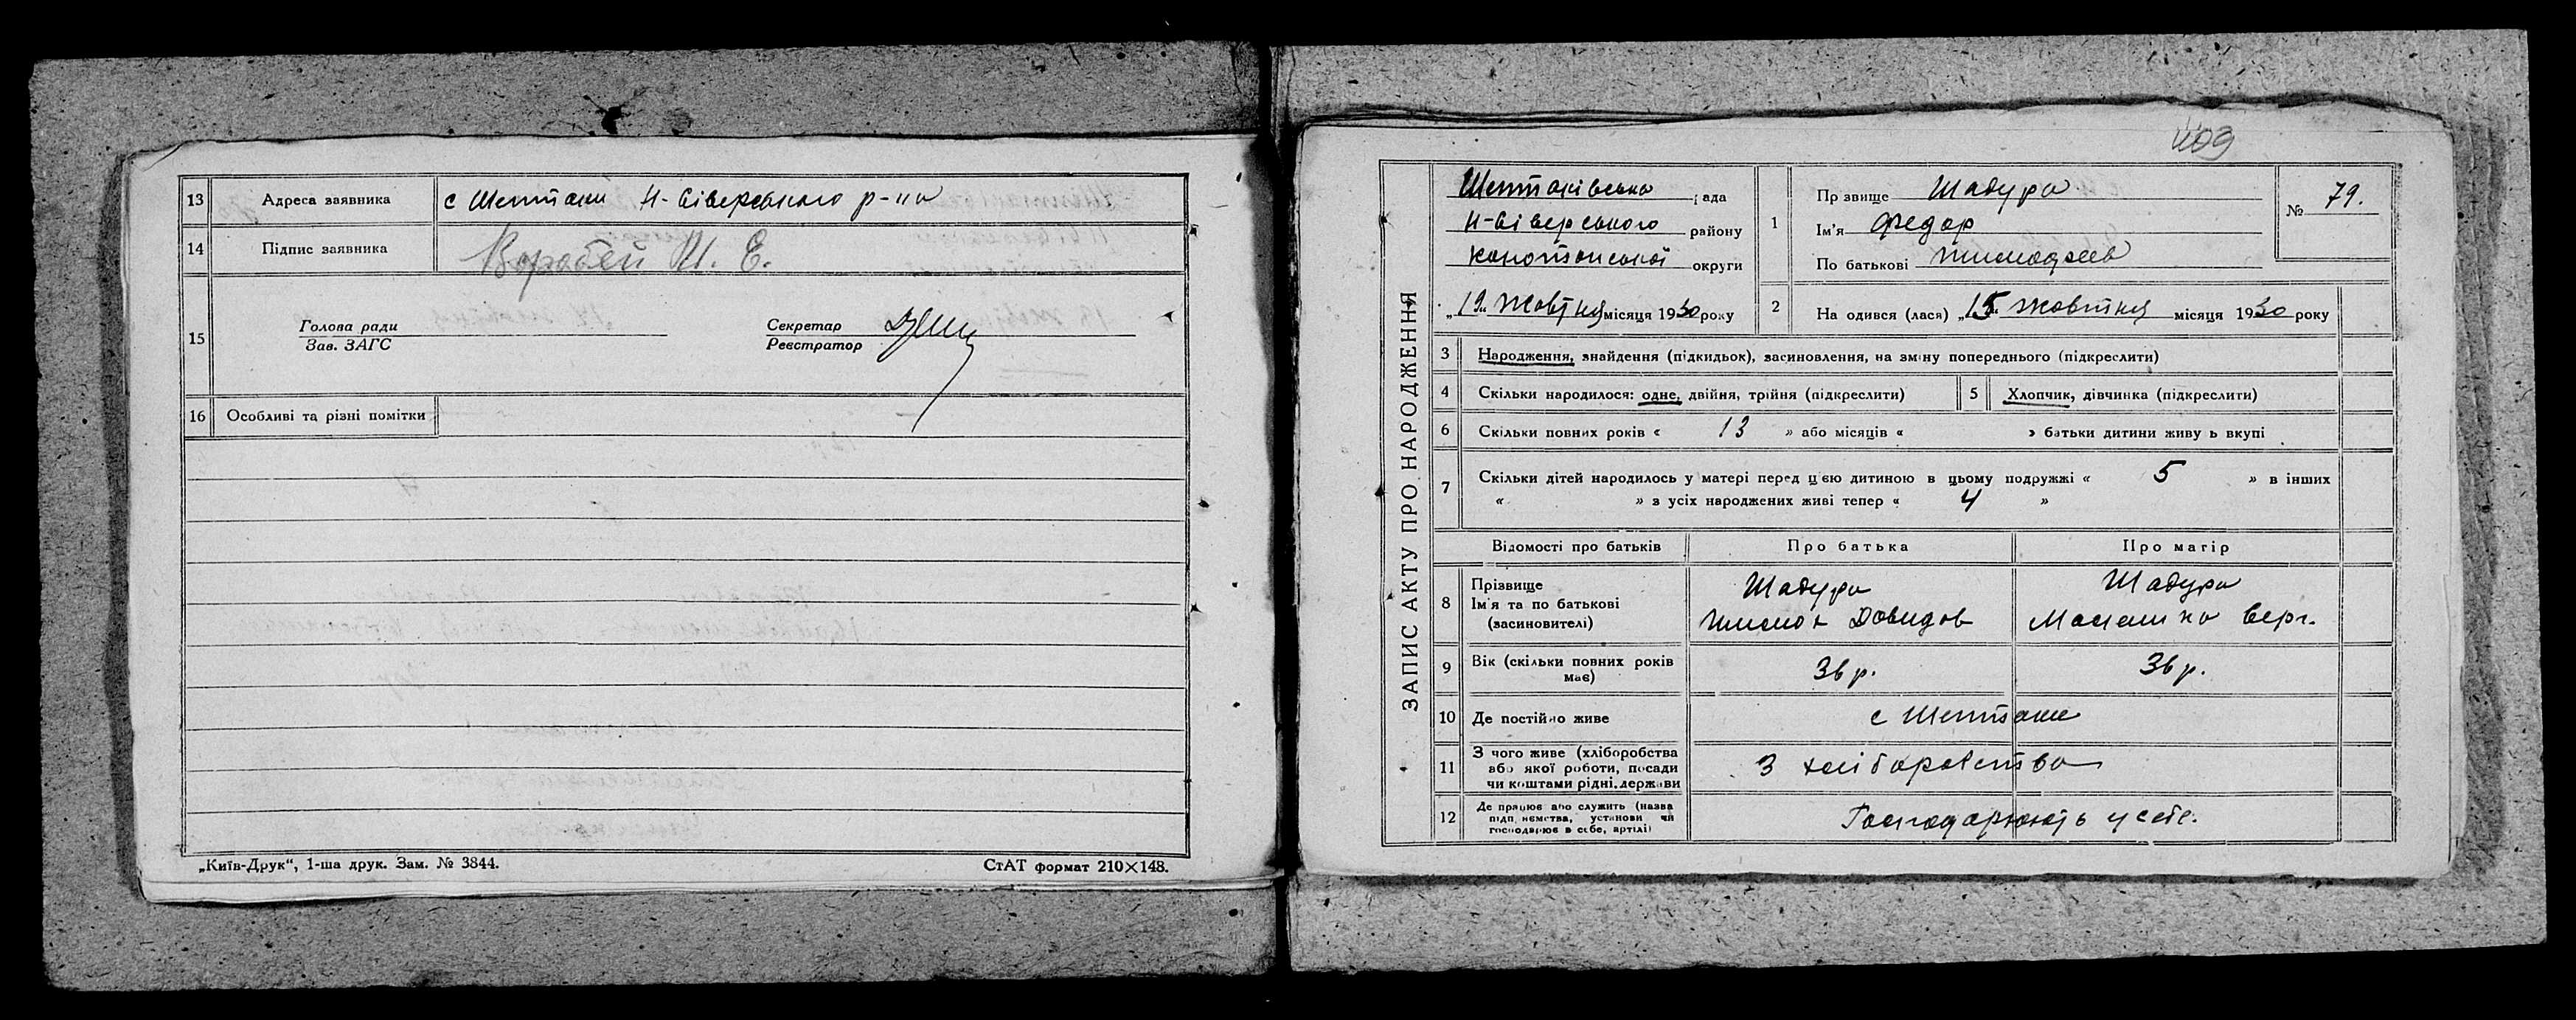 13 Адреса заявника с Шептаки Н-Сіверського р-на
14 Підпис заявника Воробей И. Е.
15 Голова ради
Зав. ЗАГС
Секретар
Реєстратор
16 Особливі та різні помітки
„Київ-Друк“, 1-ша друк. Зам. № 3844.
СтАТ формат 210×148.
409
ЗАПИС АКТУ ПРО НАРОДЖЕННЯ
Шептаківська рада
Н-Сіверського району
Конотопської округи
„19“ Жовтня місяця 1930 року
1 Прізвище Шадура
Ім'я Федор
По батькові Тимофеев
№ 79.
2 Народився (лася) „15“ Жовтня місяця 1930 року
3 Народження, знайдення (підкидьок), засиновлення, на зміну попереднього (підкреслити)
4 Скільки народилося: одне, двійня, трійня (підкреслити) 5 Хлопчик, дівчинка (підкреслити)
6 Скільки повних років « 13 » або місяців « » батьки дитини живуть вкупі
7 Скільки дітей народилось у матері перед цією дитиною в цьому подружжі « 5 » в інших
« » з усіх народжених живі тепер « 4 »
Відомості про батьків Про батька Про матір
8 Прізвище
Ім'я та по батькові
(засиновителі)
Шадура
Довидов
Шадура
9 Вік (скільки повних років
має)
36 р. 36 р.
10 Де постійно живе с Шептаки
11 З чого живе (хліборобства
або якої роботи, посади
чи коштами рідні, держави
З хліборобства
12 Де працює або служить (назва
підприємства, установи чи
господарює в себе, артілі)
Господарюють у себе.